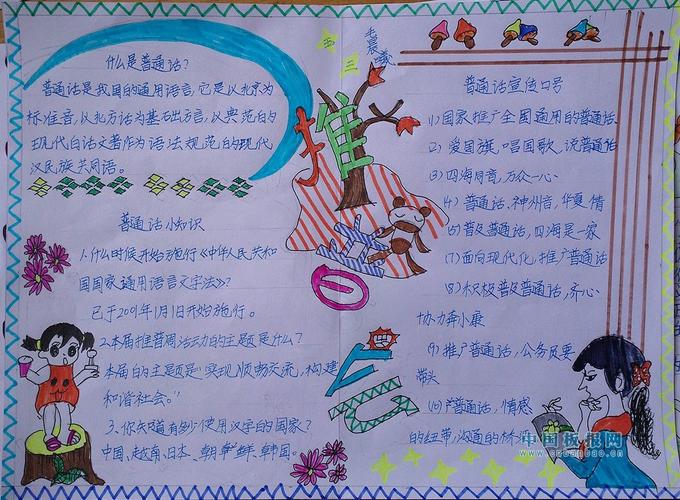 什么是普通话？
普通话是我国的通用语言，它是以北京为
标准音，以北方话为基础方言，以典范的
现代白话文著作为语法规范的现代
汉民族共同语。
普通话小知识
1、什么时候开始施行《中华人民共和
国国家通用语言文字法》？
已于2001年1月1日开始施行。
2、本届推普周活动的主题是什么？
本届的主题是"实现顺畅交流，构建
和谐社会。"
3、你知道有多少使用汉字的国家？
中国、越南、日本、朝鲜、韩国。
五
三
毛
晨
曦
推
普通话宣传口号
(1)国家推广全国通用的普通话
(2)爱国旗、唱国歌、说普通话
(3)四海同音，万众一心
(4)普通话、神州音，华夏情
(5)普及普通话，四海是一家
(7)面向现代化，推广普通话
(8)积极普及普通话，齐心
协力奔小康
(9)推广普通话，公务员要
带头
(10)普通话，情感
的纽带，沟通的桥
中国板报网